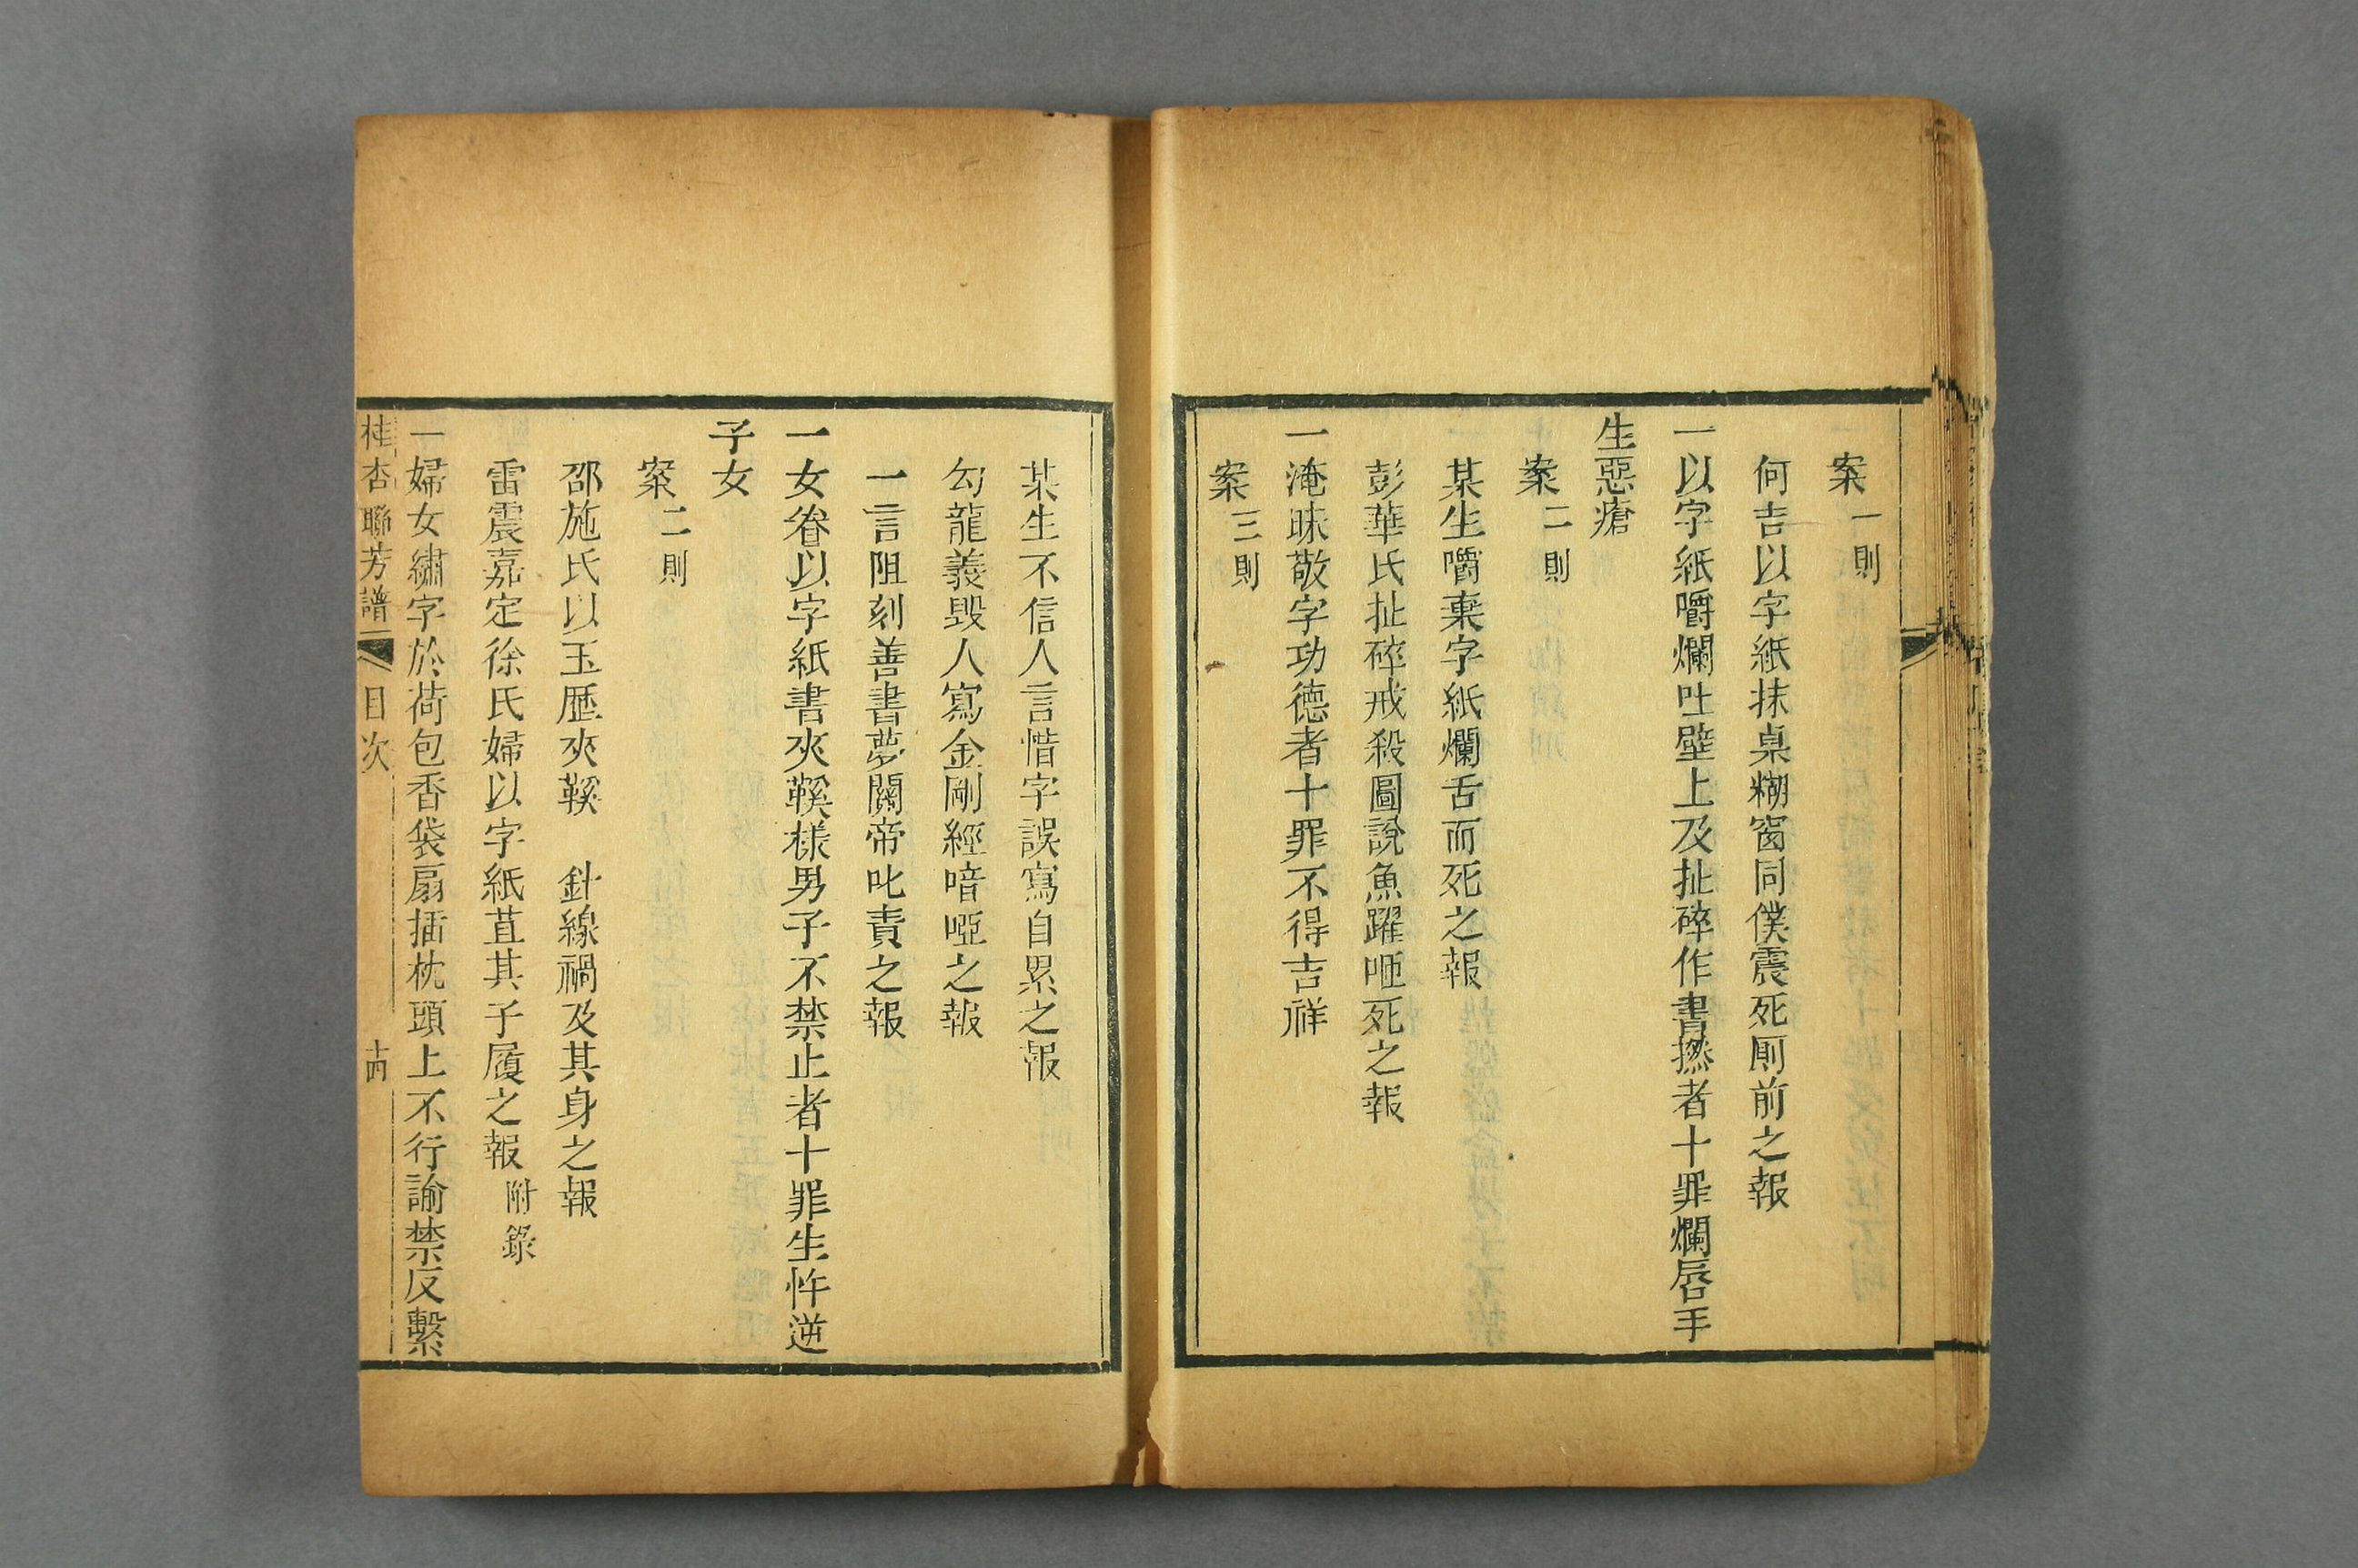 案一則
何吉以字紙抹桌糊窗同僕震死厠前之報
一以字紙嚼爛吐壁上及扯碎作書撚者十罪爛唇手
生惡瘡
案二則
某生嚼棄字紙爛舌而死之報
彭華氏扯碎戒殺圖說魚躍咂死之報
一淹昧敬字功德者十罪不得吉祥
案三則
某生不信人言惜字誤寫自累之報
勾龍義毀人寫金剛經喑啞之報
一言阻刻善書夢關帝叱責之報
一女眷以字紙書夾鞵樣男子不禁止者十罪生忤逆
子女
案二則
邵施氏以玉歷夾鞵　針線禍及其身之報
雷震嘉定徐氏婦以字紙苴其子履之報附錄
一婦女繡字於荷包香袋扇插枕頭上不行諭禁反繫
桂杏聯芳譜　目次　十四